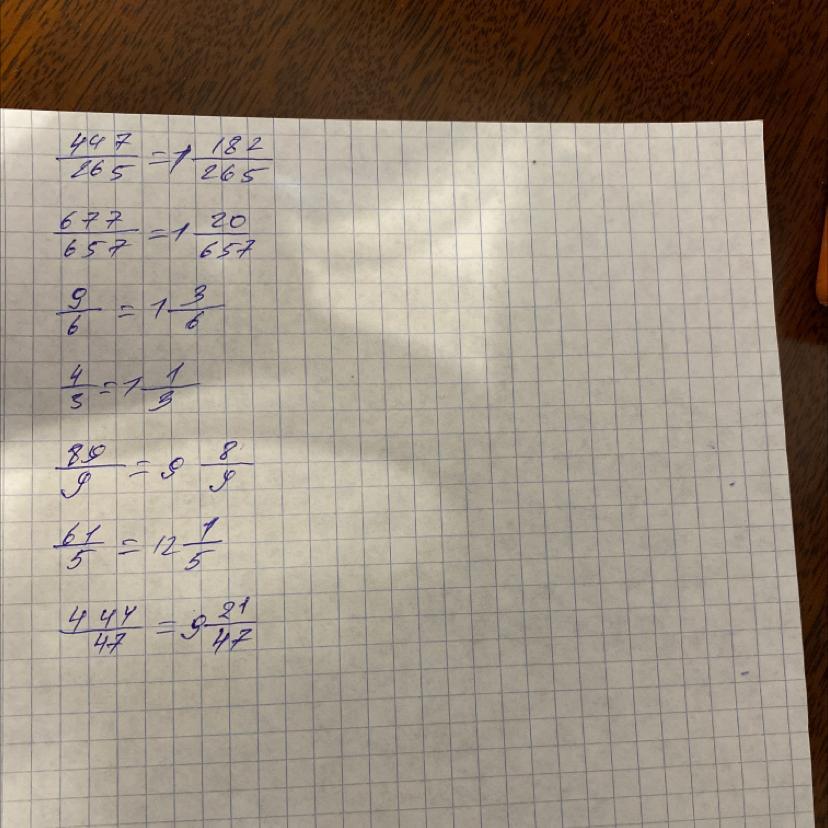 447/265 = 1 182/265
677/657 = 1 20/657
9/6 = 1 3/6
4/3 = 1 1/3
89/9 = 9 8/9
61/5 = 12 1/5
444/47 = 9 21/47